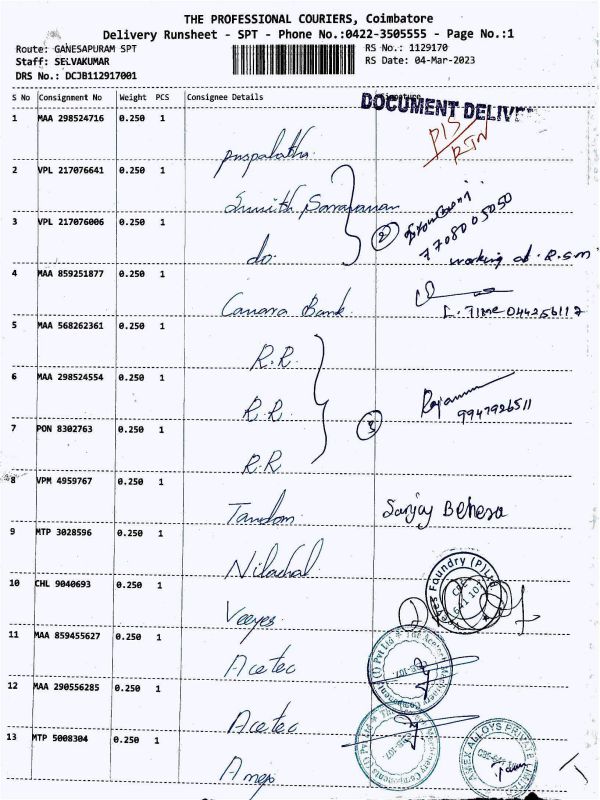 THE PROFESSIONAL COURIERS, Coimbatore
Delivery Runsheet - SPT - Phone No.:0422-3505555 - Page No.:1
Route: GANESAPURAM SPT
RS No.: 1129170
Staff: SELVAKUMAR
RS Date: 04-Mar-2023
DRS No.: DCJB112917001
S No Consignment No Weight PCS Consignee Details Signature
DOCUMENT DELIVE
1 MAA 298524716 0.250 1
puspalatha
2 VPL 217076641 0.250 1
Sumith Saravanan
3 VPL 217076006 0.250 1
do.
2
7708005050
working at R.S.M
4 MAA 859251877 0.250 1
Canara Bank
5 MAA 568262361 0.250 1
R.R.
6 MAA 298524554 0.250 1
R.R.
9947926511
7 PON 8302763 0.250 1
R.R
3
8 VPM 4959767 0.250 1
Tandom Sanjoy Behera
9 MTP 3028596 0.250 1
Nilachal
10 CHL 9040693 0.250 1
Veeyes
Veeyes Foundry (P) Ltd
11 MAA 859455627 0.250 1
Acetec
The Acetec Machinery Components (I) Pvt Ltd
12 MAA 290556285 0.250 1
Acetec
The Acetec Machinery Components (I) Pvt Ltd
13 MTP 5008304 0.250 1
Amex
ALLOYS PRIVATE